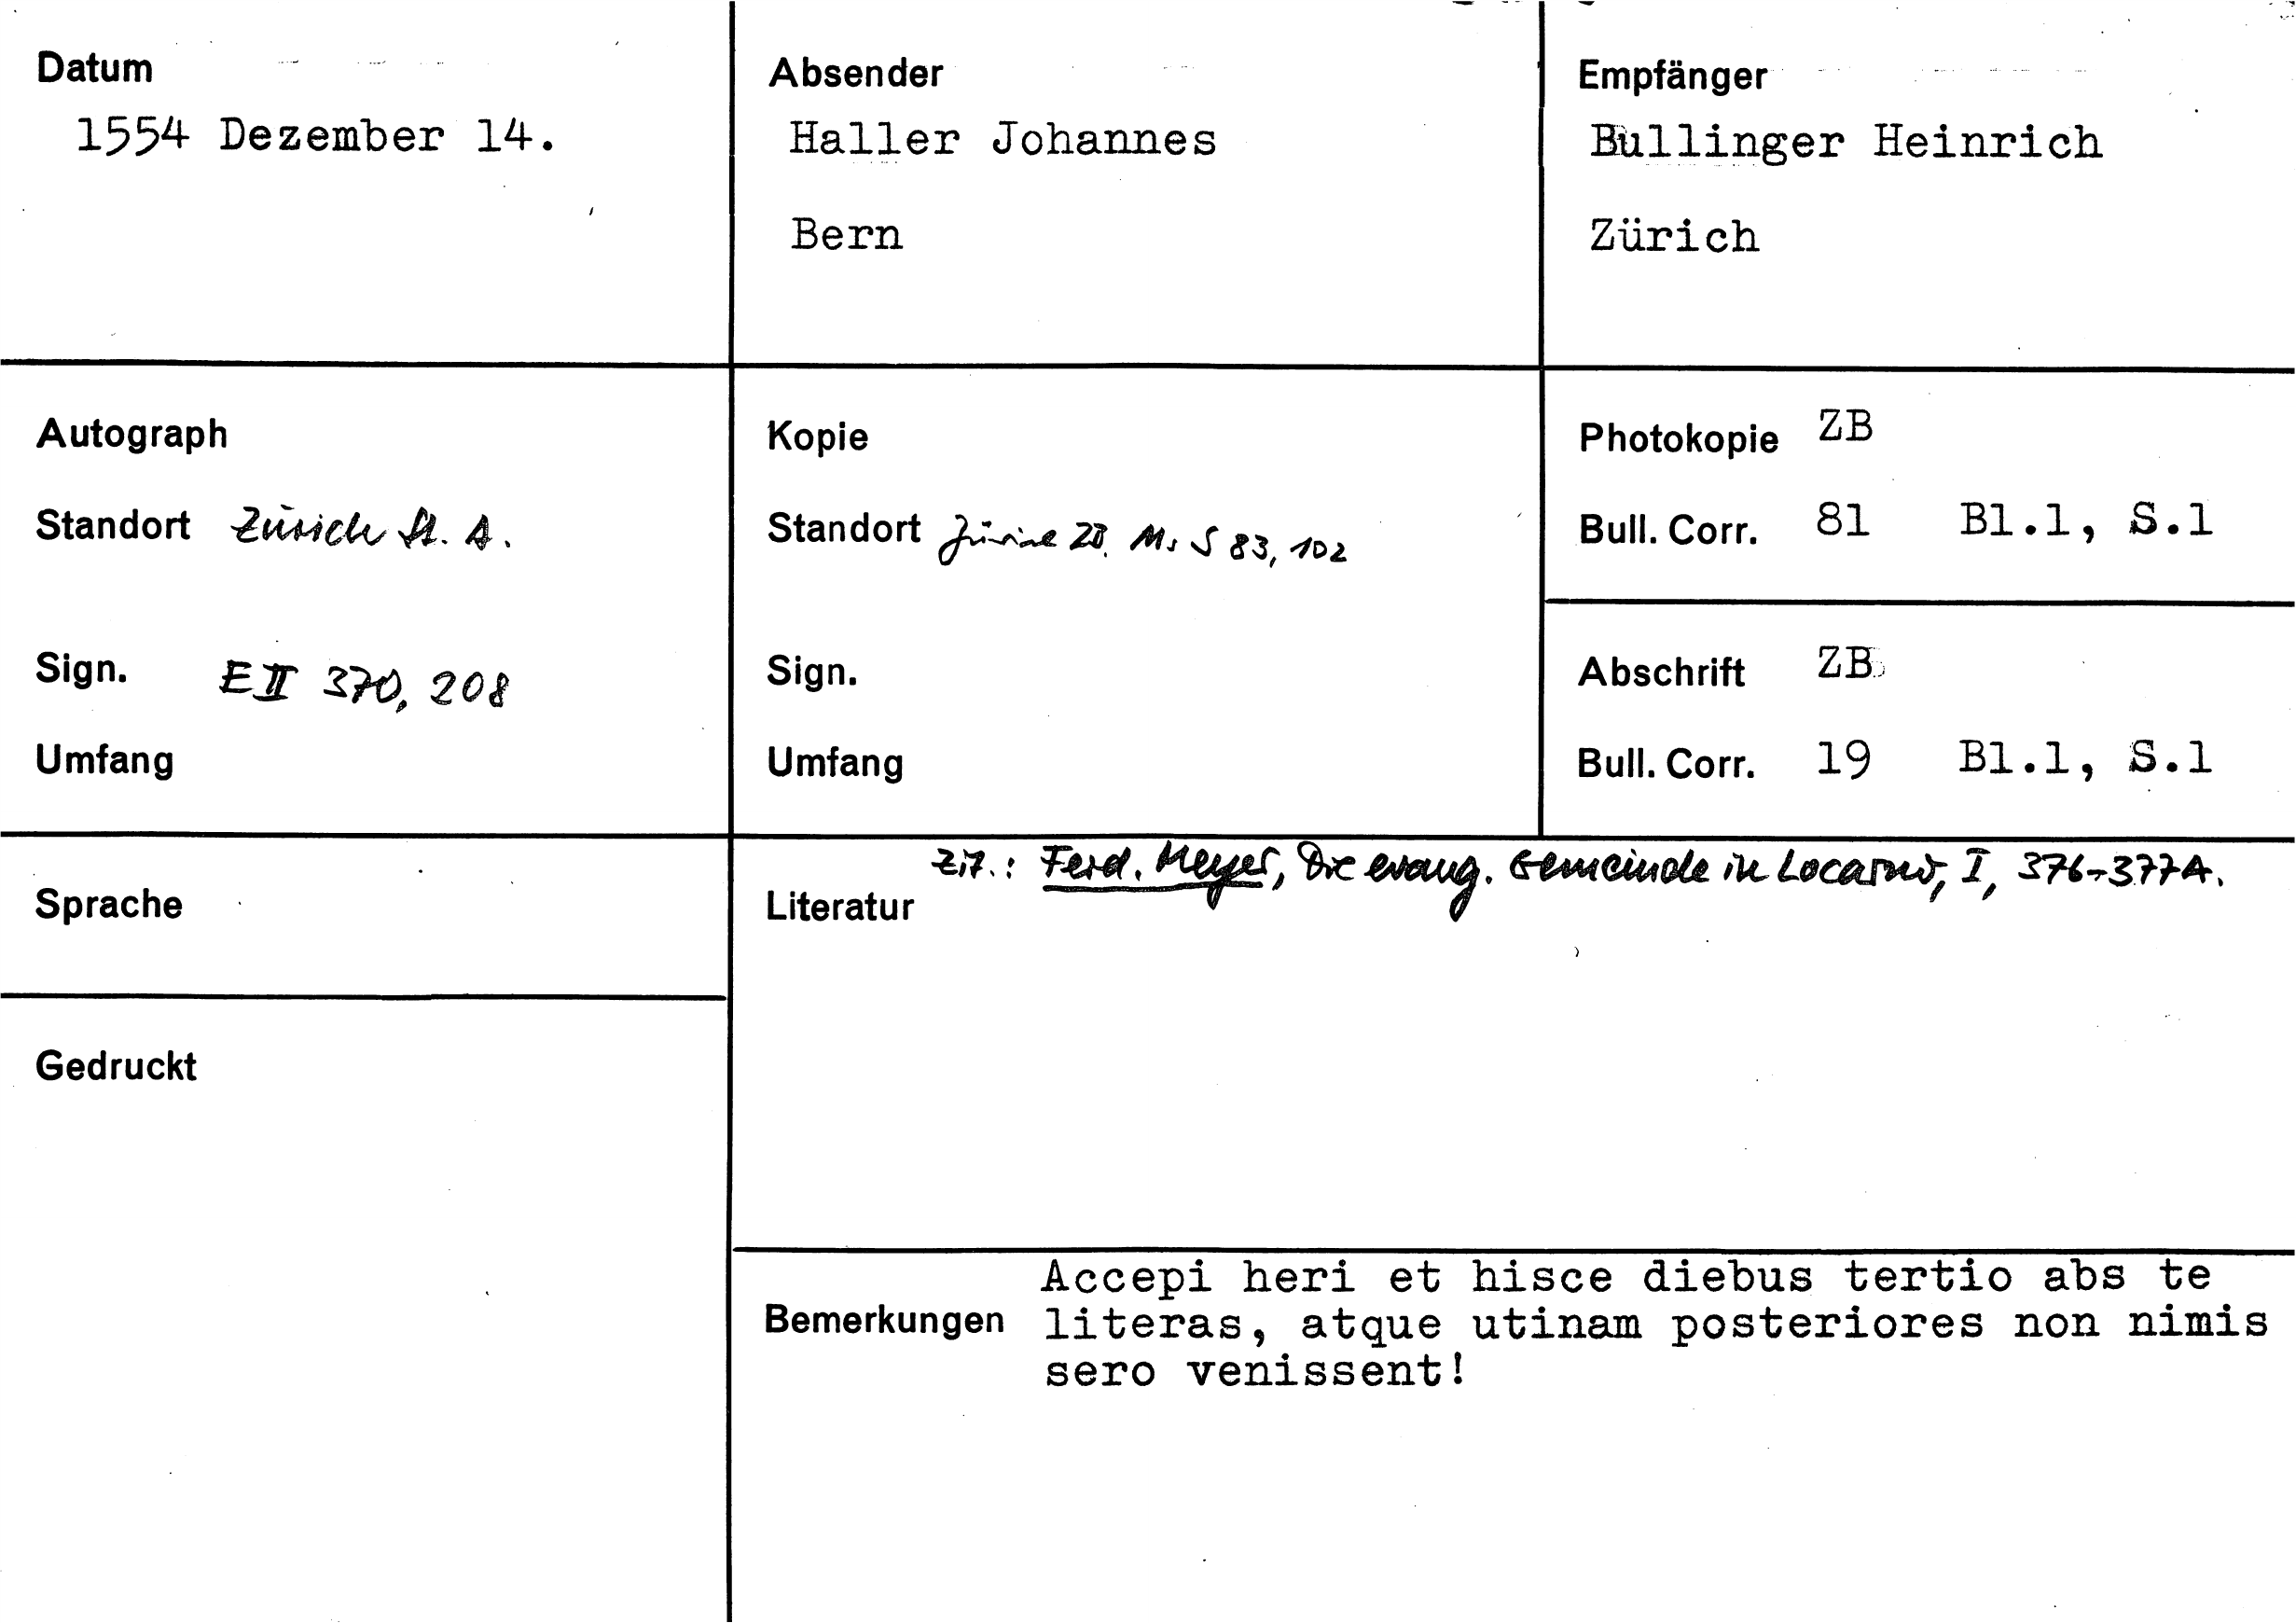 Datum
1554 Dezember 14.
Absender
Haller Johannes
Bern
Empfänger
Bullinger Heinrich
Zürich
Autograph
Standort Zürich St. A.
Sign. E II 370, 208
Umfang
Kopie
Standort Zürich ZB. Ms S 83, 102
Sign.
Umfang
Photokopie ZB
Bull. Corr. 81 Bl.1, S.1
Abschrift ZB
Bull. Corr. 19 Bl.1, S.1
Sprache
Gedruckt
Zit.: Ferd. Meyer, Die evang. Gemeinde in Locarno, I, 376-377A.
Literatur
Accepi heri et hisce diebus tertio abs te
Bemerkungen literas, atque utinam posteriores non nimis
sero venissent!